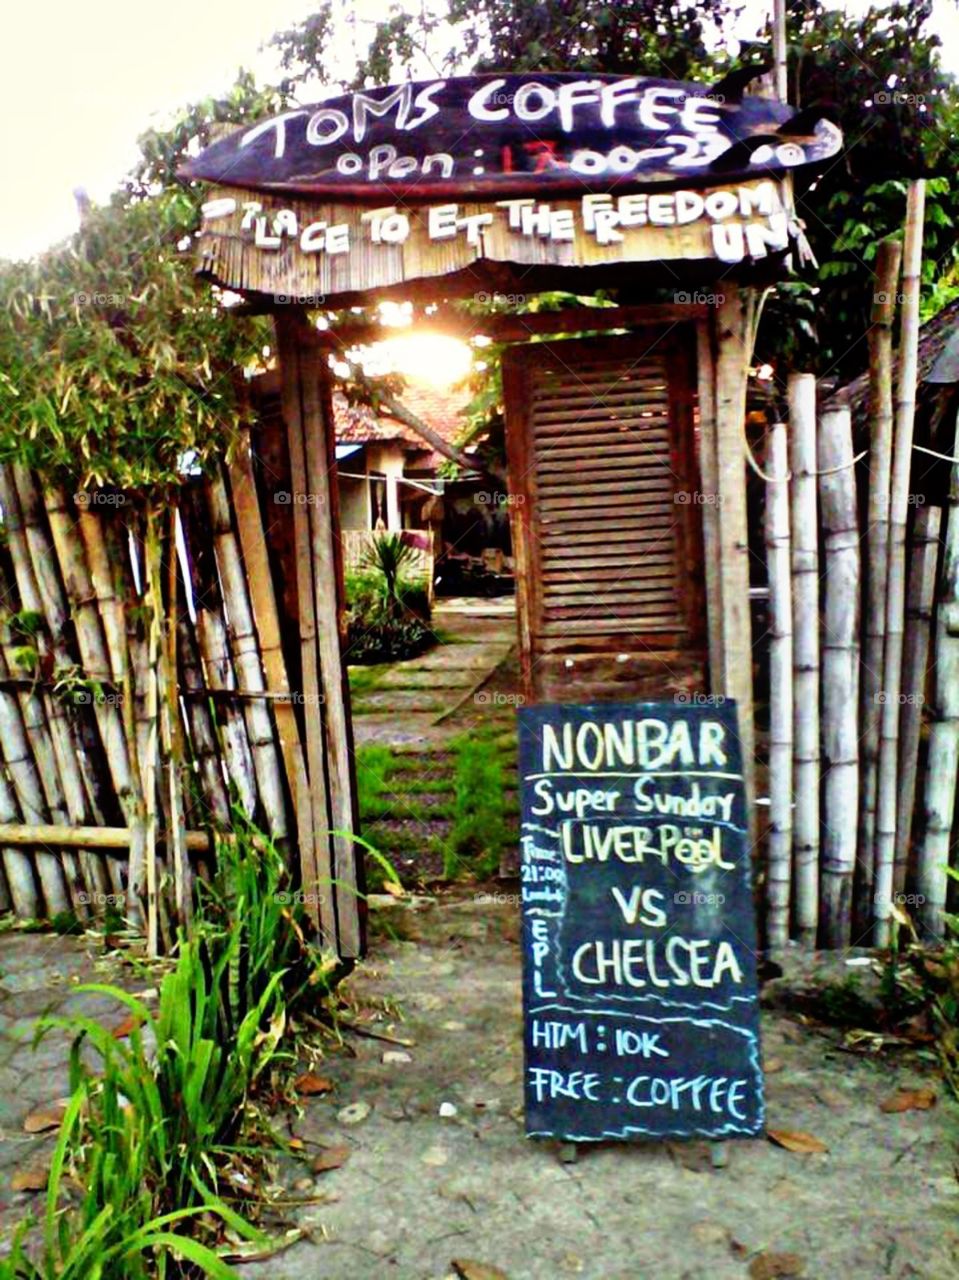 TOMS COFFEE
OPEN : 17.00-23.00
PLACE TO GET THE FREEDOM
UN
NONBAR
Super Sunday
LIVERPOOL
VS
CHELSEA
Time
21:00
EPL
HTM : 10K
FREE : COFFEE